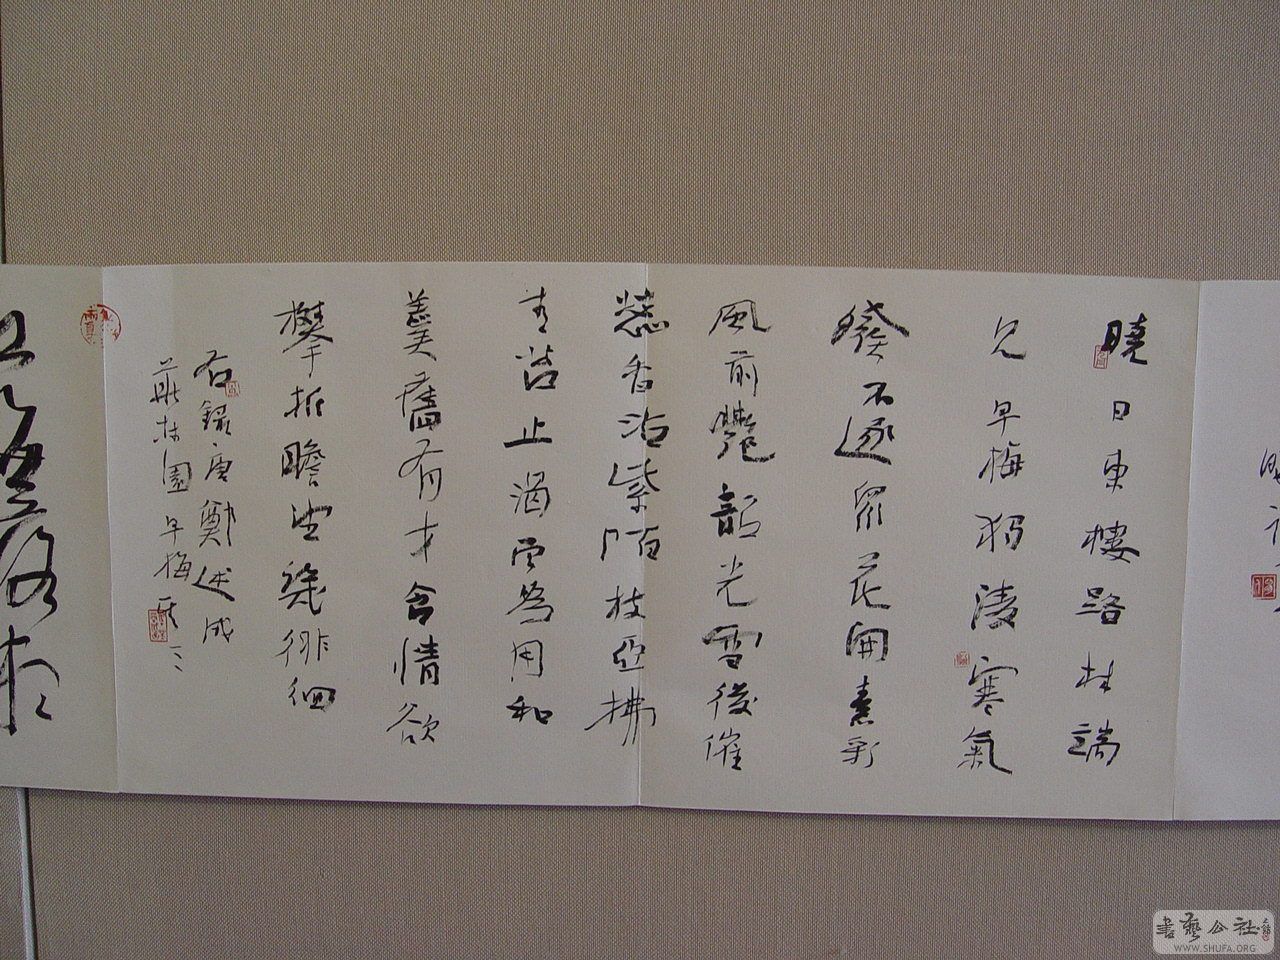 曉日東樓路林端
見早梅独淩寒氣
發不逐眾花開素彩
風前艷韶光雪後催
蕊香沾紫陌枝亞拂
青苔止渴曾為用和
羹舊有才含情欲
攀折瞻望幾徘徊
右錄唐鄭述成
華林園早梅
書藝公社
WWW.SHUFA.ORG